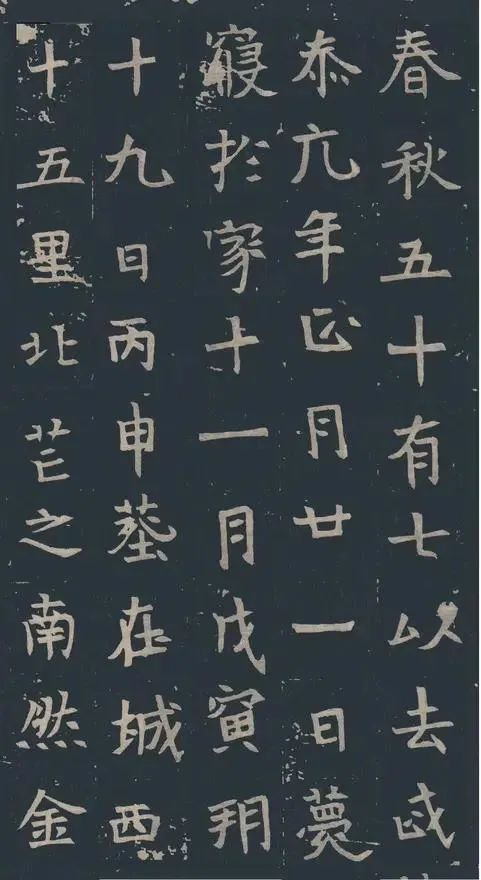 春秋五十有七以去武
泰元年正月廿一日薨
寢於家十一月戊寅朔
十九日丙申葬在城西
十五里北芒之南然金